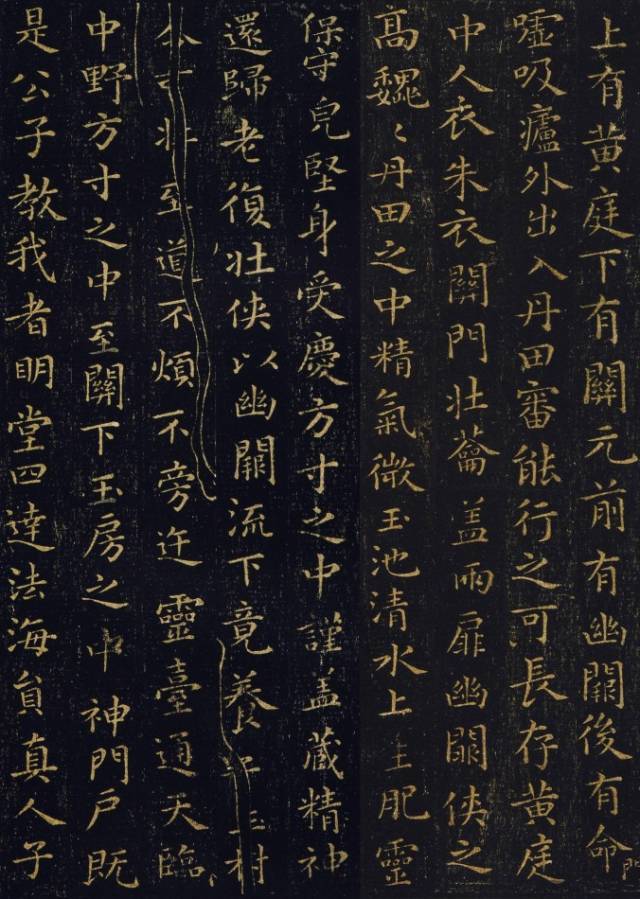 上有黄庭下有關元前有幽闕後有命門
嘘吸廬外出入丹田審能行之可長存黄庭
中人衣朱衣關門壯籥盖兩扉幽闕侠之
高巍〻丹田之中精氣微玉池清水上生肥靈
保守完堅身受慶方寸之中謹盖藏精神
還歸老復壯侠以幽闕流下竟養子玉樹
至道不煩不旁迕靈臺通天臨
中野方寸之中至關下玉房之中神門户既
是公子教我者明堂四達法海員真人子